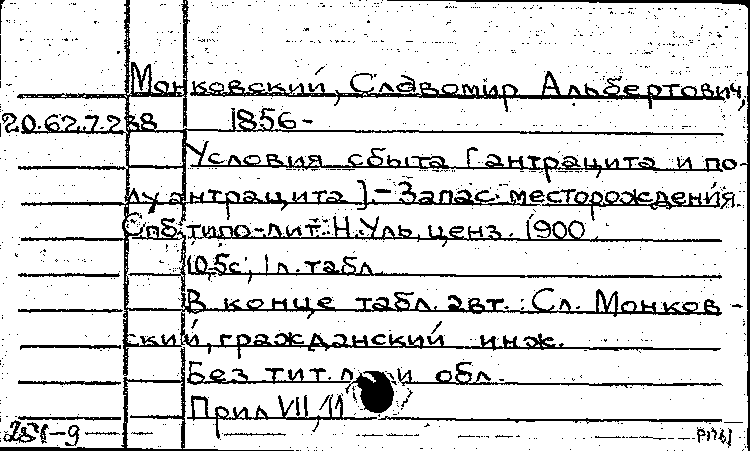 Монковский, Славомир Альбертович,
20.62.7.238 1856-
Условия сбыта [антрацита и по-
луантрацита].- Запас. месторождения.
Спб, типо-лит. Н. Уль, ценз. 1900
10,5с, 1 л. табл.
В конце табл. авт.: Сл. Монков-
ский, гражданский инж.
Без тит. л. и обл.
Прил VII, 11